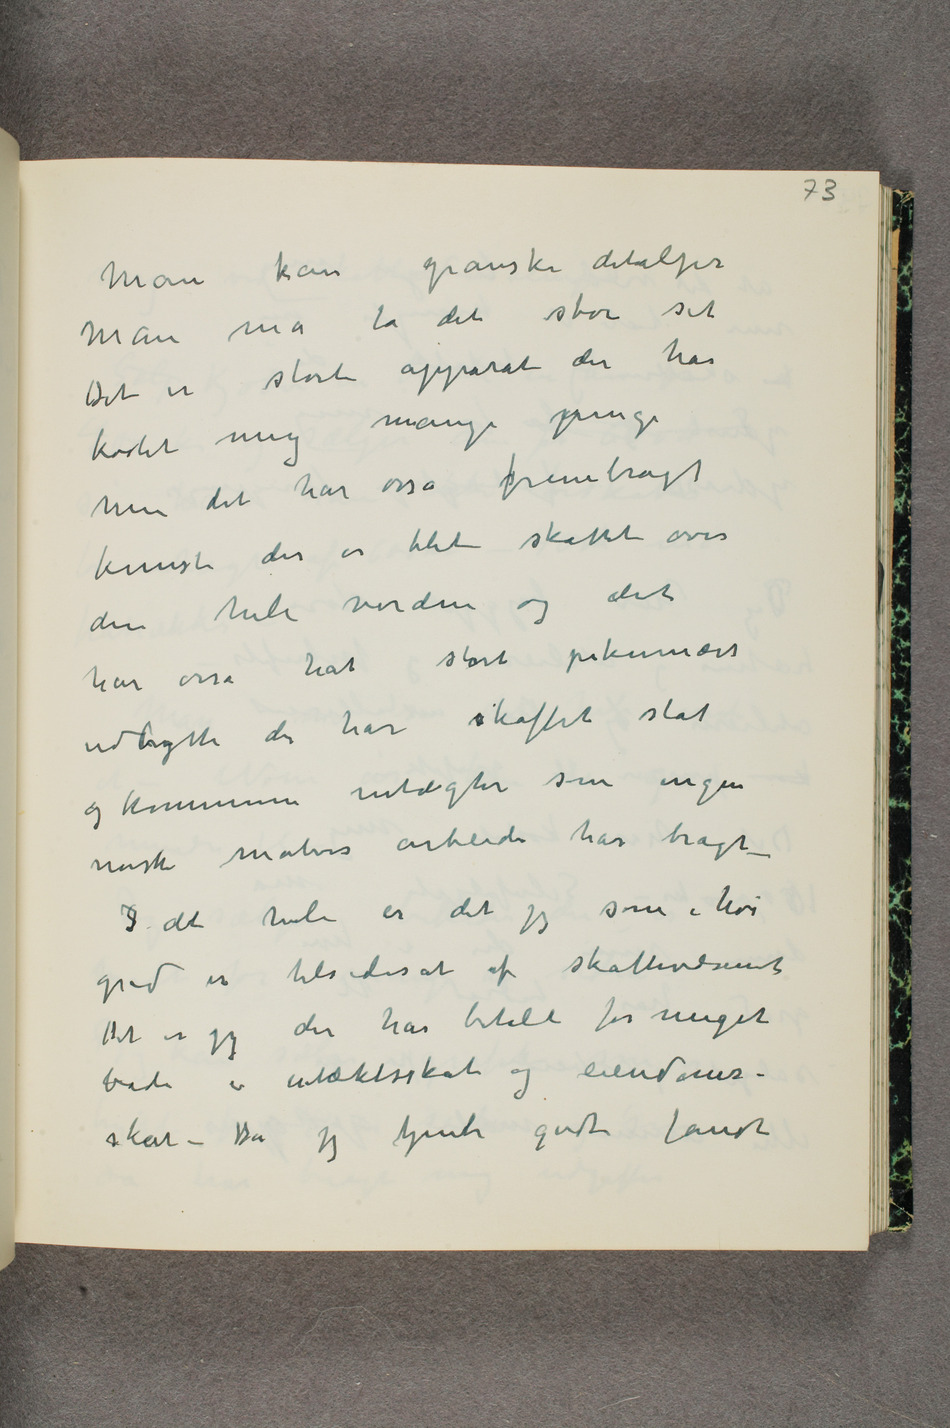 73
Man kan granske detaljer
Man må ta det stor set
Det er stort apparat der har
kostet mig mange penge
men det har osså frembragt
kunst der er blet skattet over
den hele verden og det
har osså hat stort pekuniært
udbytte der har skaffet stat
og kommune intægter som ingen
norsk malers arbeide har bragt_
I det hele er det jeg som i høi
grad er tilsidesat af skattevæsenet
Det er jeg der har betalt for meget
både i intæktsskat og eiendoms-
skat – Da jeg tjente godt fandt